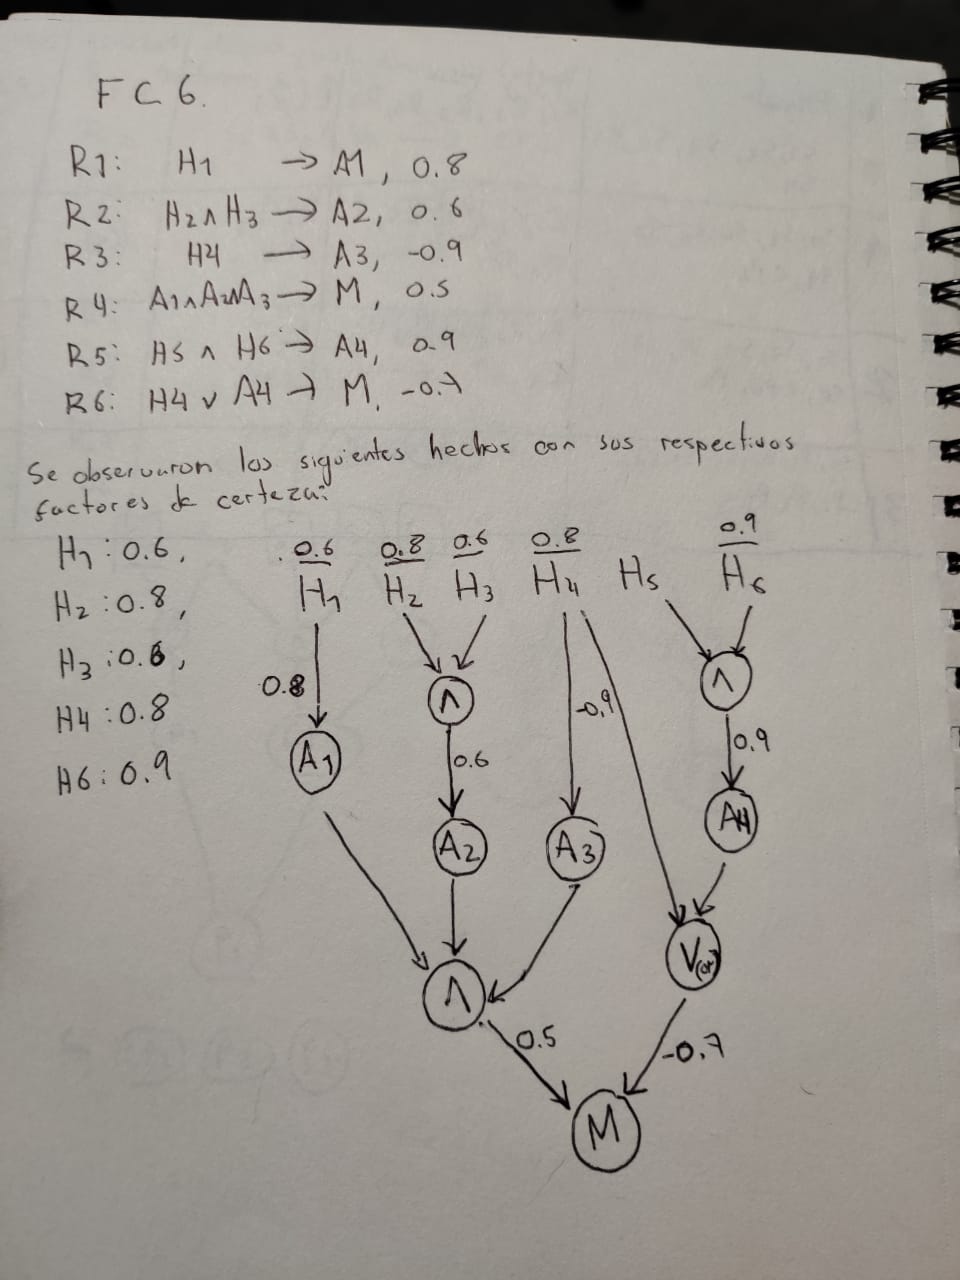 FC6.
R1: H1 → A1, 0.8
R2: H2 ∧ H3 → A2, 0.6
R3: H4 → A3, -0.9
R4: A1 ∧ A2 ∧ A3 → M, 0.5
R5: H5 ∧ H6 → A4, 0.9
R6: H4 ∨ A4 → M, -0.7
Se observaron los siguientes hechos con sus respectivos
factores de certeza:
H1 : 0.6,
H2 : 0.8,
H3 : 0.6,
H4 : 0.8
H6 : 0.9
0.6 0.8 0.6 0.8 0.9
H1 H2 H3 H4 H5 H6
0.8 ∧ -0.9 ∧
A1 0.6 0.9
A2 A3 A4
∧ V(or)
0.5 -0.7
M